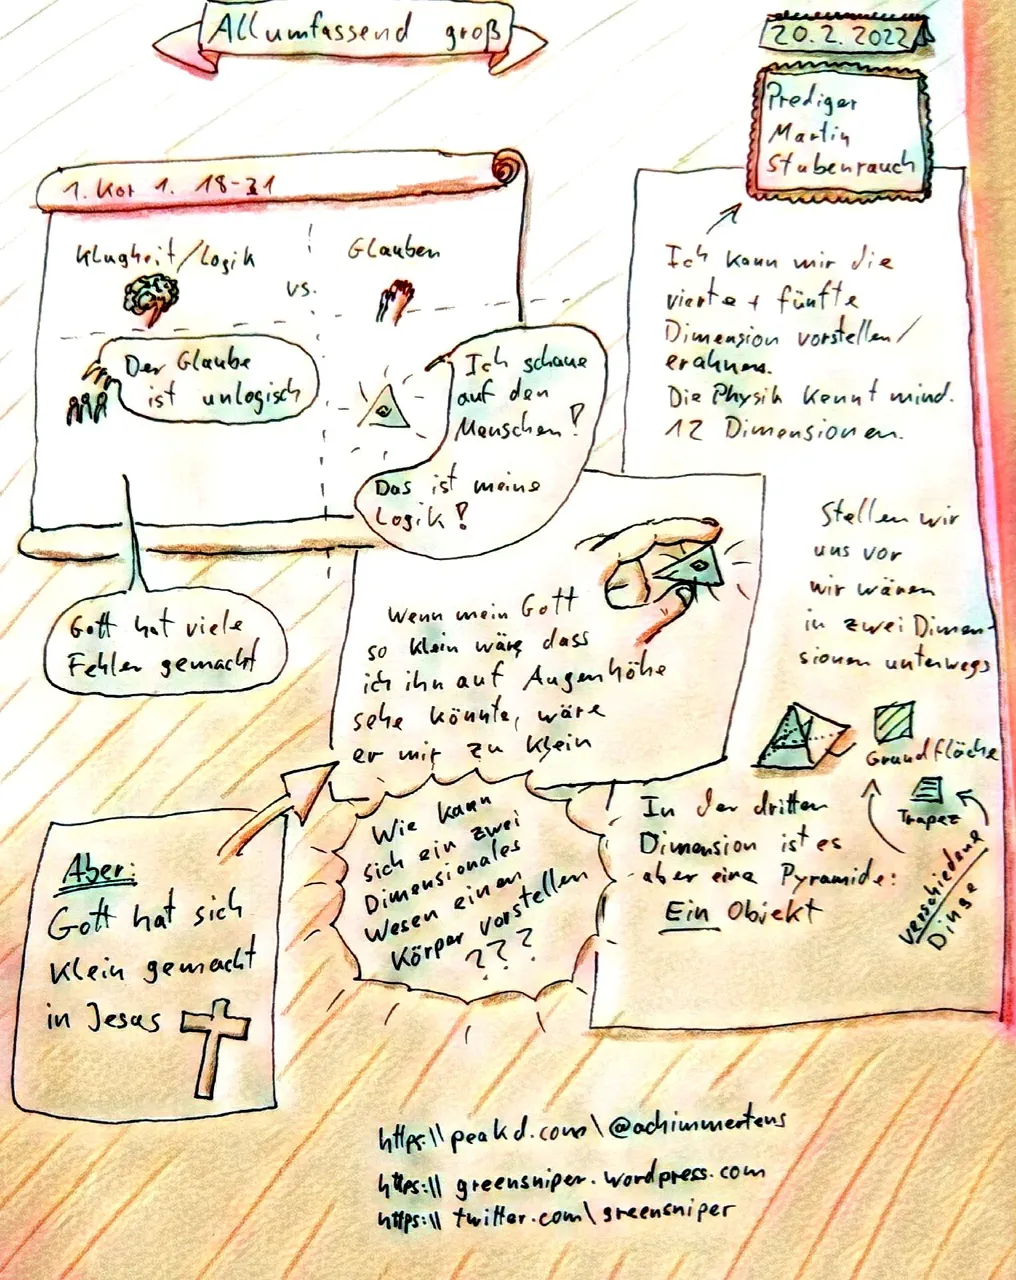 Allumfassend groß
20.2.2022
Prediger
Martin
Stubenrauch
1. Kor 1. 18-31
Klugheit/Logik
vs.
Glauben
Der Glaube
ist unlogisch
Ich schaue
auf den
Menschen!
Das ist meine
Logik!
Gott hat viele
Fehler gemacht
Ich kann mir die
vierte + fünfte
Dimension vorstellen/
erahnen.
Die Physik kennt mind.
12 Dimensionen.
Stellen wir
uns vor
wir wären
in zwei Dimen-
sionen unterwegs
Grundfläche
Trapez
verschiedene
Dinge
In der dritten
Dimension ist es
aber eine Pyramide:
Ein Objekt
Wie kann
sich ein zwei
Dimensionales
Wesen einen
Körper vorstellen
???
Wenn mein Gott
so klein wäre dass
ich ihn auf Augenhöhe
sehe könnte, wäre
er mir zu klein
Aber:
Gott hat sich
klein gemacht
in Jesus
https:\\peakd.com\@achimmertens
https:\\greensniper.wordpress.com
https:\\twitter.com\greensniper